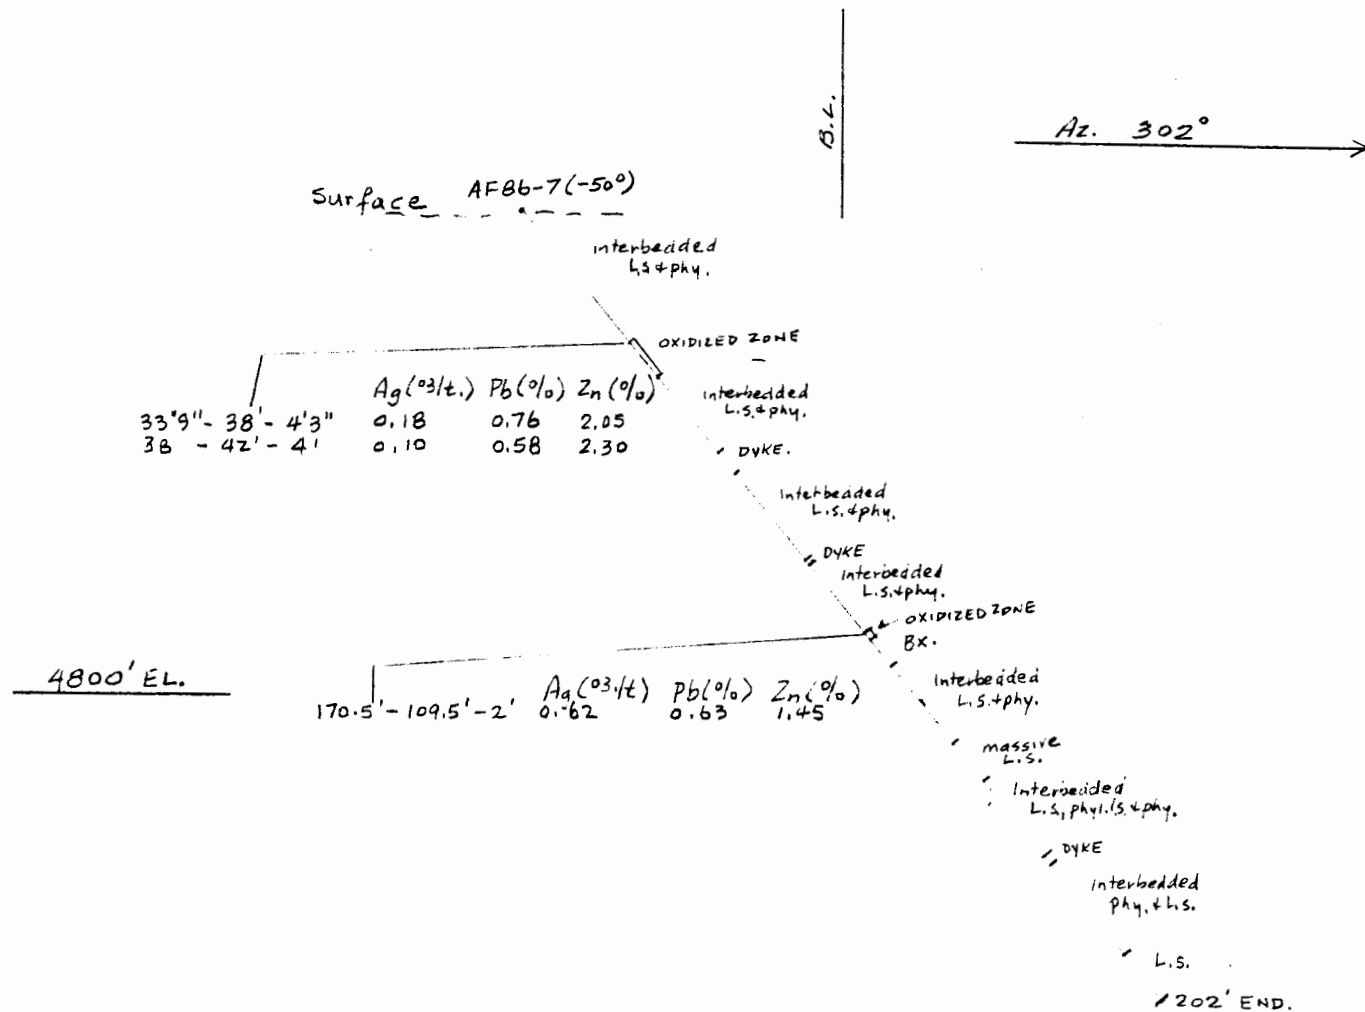 B.L.
Az. 302°
Surface AF86-7 (-50°)
interbedded
L.S & phy.
OXIDIZED ZONE
Ag (oz/t.) Pb (%) Zn (%)
33'9" - 38' - 4'3" 0.18 0.76 2.05
38 - 42' - 4' 0.10 0.58 2.30
interbedded
L.S. & phy.
DYKE.
Interbedded
L.S. & phy.
DYKE
interbedded
L.S. & phy.
OXIDIZED ZONE
BX.
4800' EL.
Ag (oz./t) Pb (%) Zn (%)
170.5' - 109.5' - 2' 0.62 0.63 1.45
Interbedded
L.S. & phy.
massive
L.S.
Interbedded
L.S, phyl. l.s. & phy.
DYKE
interbedded
phy. & L.S.
L.S.
202' END.